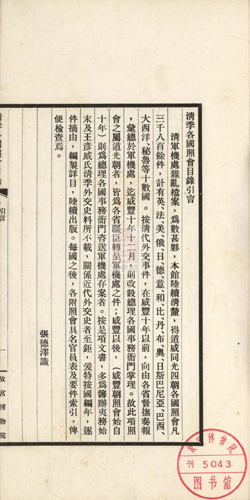 清季各國照會目錄引言
清軍機處雜亂檔案，爲數甚夥，本館陸續清釐，得道咸同光四朝各國照會凡
三千八百餘件，計有英、法、美、俄、日、德、意、和、比、丹、布、奧、日斯巴尼亞、巴西、
大西洋、秘魯等十數國。按清代外交事件，在咸豐十年以前，向由各省督撫奏報
，彙總於軍機處，迄咸豐十年十二月，則改設總理各國事務衙門掌理。故此項照
會之屬道光朝者，皆爲各省疆臣轉呈軍機處之件；咸豐以後，（咸豐朝照會始自
十年）則爲總理各國事務衙門咨送軍機處存案者。按是項文書，多爲籌辦夷務始
末及王彥威氏清季外交史料所不載，關係近代外交史者至鉅，爰特按國編年，逐
件摘由，編製詳目，陸續出版。每國之後，各附照會具名官員表及要件索引，俾
便檢查焉。
張德澤識
引言
故宮博物院
故宮博物院
刊5043
圖書館